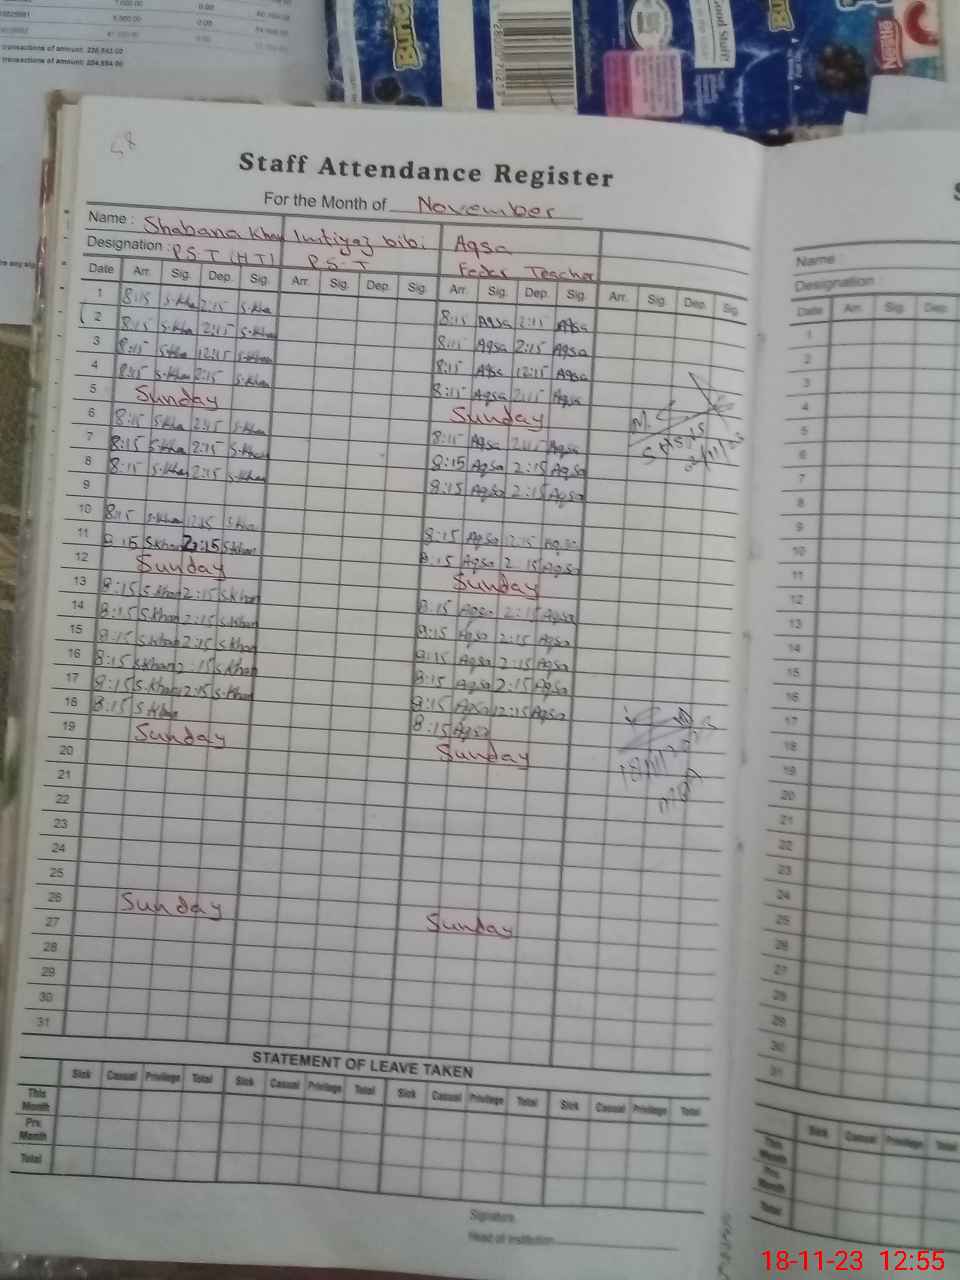 Staff Attendance Register
For the Month of November
Name : Shabana Khan Imtiyaz bibi Aqsa
Designation : P.S.T (H T) P.S.T Feder Teacher
Date Arr. Sig. Dep. Sig. Arr. Sig. Dep. Sig. Arr. Sig. Dep. Sig. Arr. Sig. Dep. Sig.
1 8:15 S-Kha 2:15 S-Kha 8:15 Aqsa 2:15 Aqsa
2 8:15 S-Kha 2:15 S-Kha 8:15 Aqsa 2:15 Aqsa
3 8:15 S-Kha 12:15 S-Khan 8:15 Aqsa 12:15 Aqsa
4 8:15 S-Khan 2:15 S-Khan 8:15 Aqsa 2:15 Aqsa
5 Sunday Sunday
6 8:15 S-Kha 2:15 S-Kha 8:15 Aqsa 2:15 Aqsa
7 8:15 S-Kha 2:15 S-Khan 8:15 Aqsa 2:15 Aqsa
8 8:15 S-Kha 2:15 S-Khan 8:15 Aqsa 2:15 Aqsa
9
10 8:15 S-Kha 12:15 S-Kha 8:15 Aqsa 12:15 Aqsa
11 8:15 S.Khan 2:15 S.Khan 8:15 Aqsa 2:15 Aqsa
12 Sunday Sunday
13 8:15 S.Khan 2:15 S.Khan 8:15 Aqsa 2:15 Aqsa
14 8:15 S.Khan 2:15 S.Khan 8:15 Aqsa 2:15 Aqsa
15 8:15 S.Khan 2:15 S.Khan 8:15 Aqsa 2:15 Aqsa
16 8:15 S.Khan 2:15 S.Khan 8:15 Aqsa 2:15 Aqsa
17 8:15 S.Khan 12:15 S.Khan 8:15 Aqsa 12:15 Aqsa
18 8:15 S.Khan 8:15 Aqsa
19 Sunday Sunday
20
21
22
23
24
25
26 Sunday Sunday
27
28
29
30
31
STATEMENT OF LEAVE TAKEN
Sick Casual Privilege Total Sick Casual Privilege Total Sick Casual Privilege Total Sick Casual Privilege Total
This Month
Prv. Month
Total
Signature
Head of Institution
Name :
Designation :
Date Arr. Sig. Dep.
1
2
3
4
5
6
7
8
9
10
11
12
13
14
15
16
17
18
19
20
21
22
23
24
25
26
27
28
29
30
31
Sick Casual Privilege Total
This Month
Prv. Month
Total
Nestlé
transactions of amount: 204,594.00
18-11-23 12:55